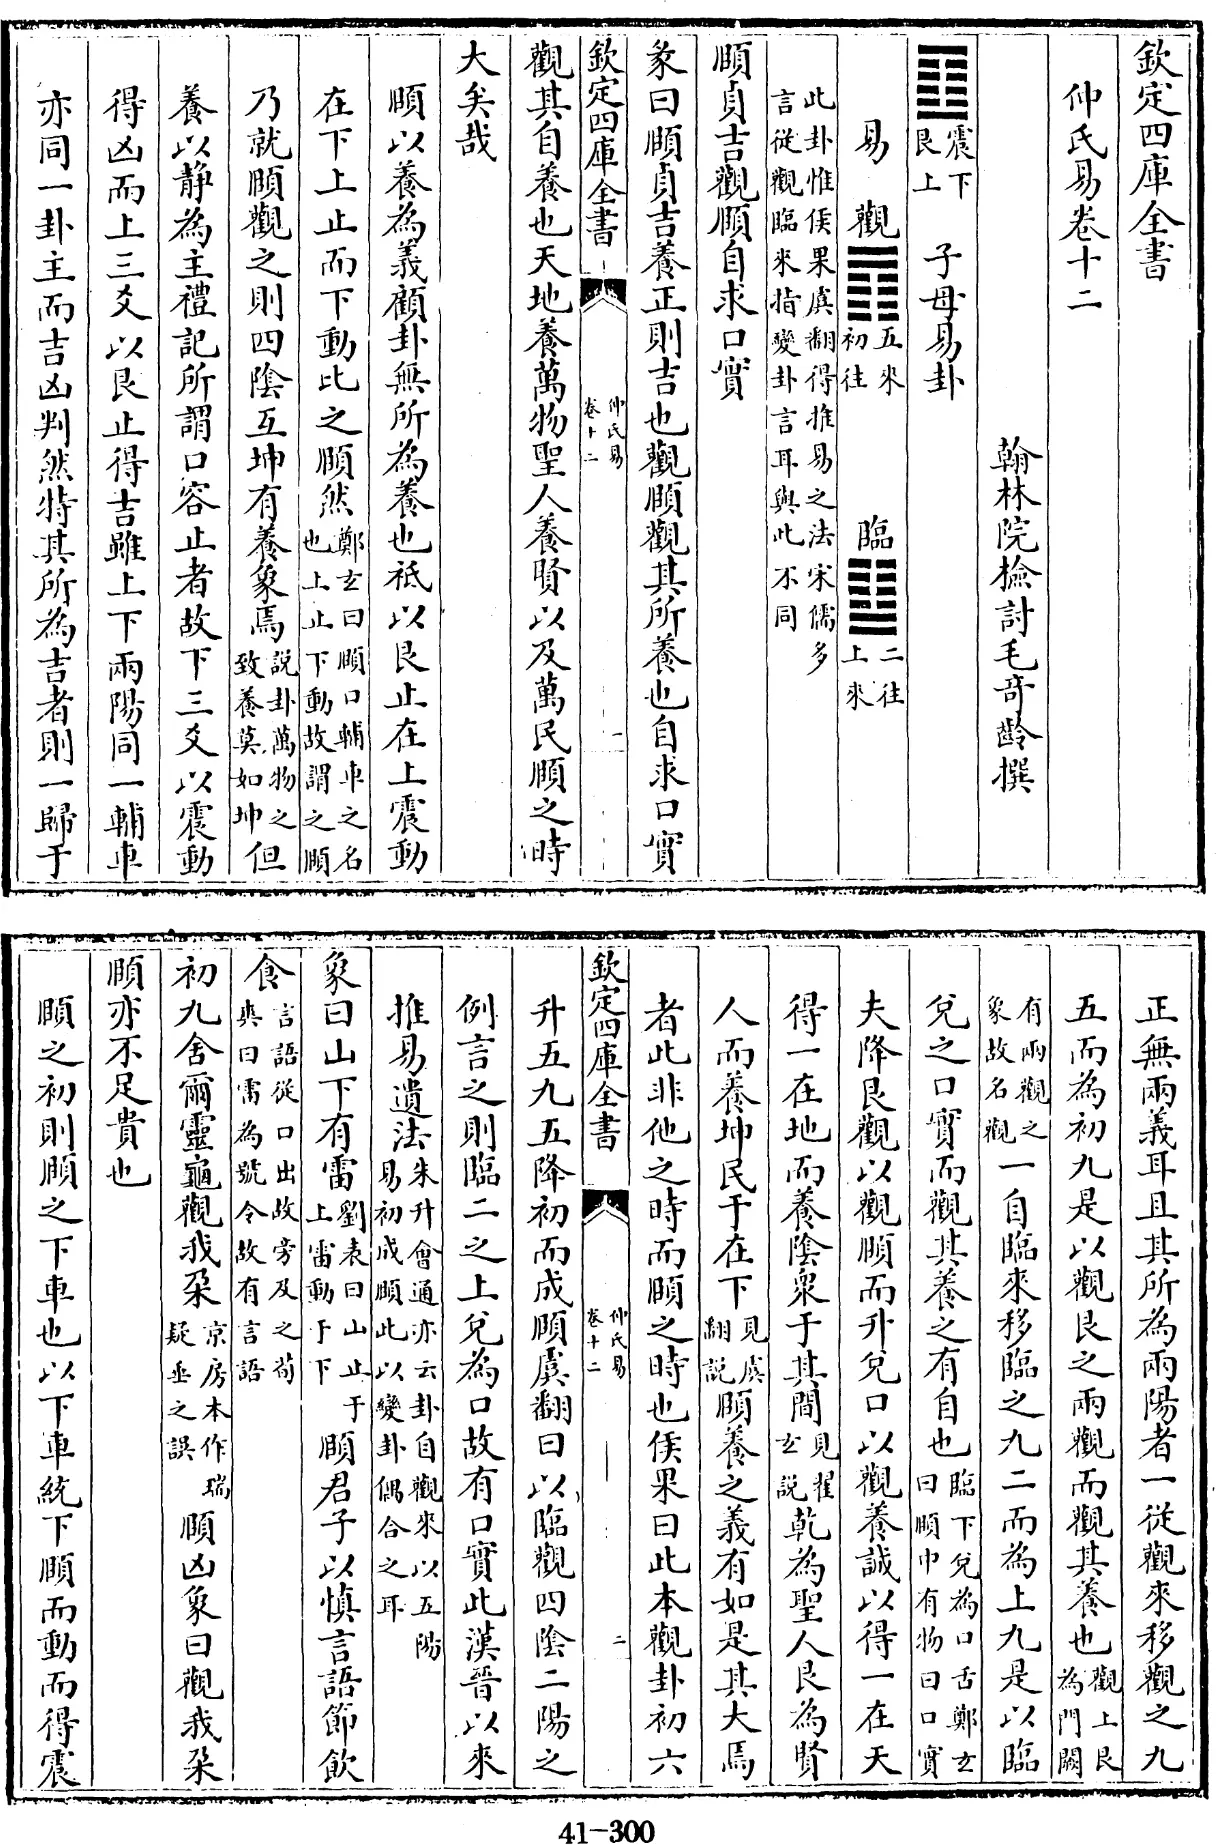 欽定四庫全書
仲氏易卷十二
翰林院檢討毛奇齡撰
震下艮上 子母易卦
易 觀 五來初往 臨 二往上來
此卦惟侯果虞翻得推易之法宋儒多
言從觀臨來指變卦言耳與此不同
頤貞吉觀頤自求口實
彖曰頤貞吉養正則吉也觀頤觀其所養也自求口實
欽定四庫全書 仲氏易 卷十二 一
觀其自養也天地養萬物聖人養賢以及萬民頤之時
大矣哉
頤以養為義顧卦無所為養也祗以艮止在上震動
在下上止而下動比之頤然鄭玄曰頤口輔車之名也上止下動故謂之頤
乃就頤觀之則四陰互坤有養象焉說卦萬物之致養莫如坤但
養以静為主禮記所謂口容止者故下三爻以震動
得凶而上三爻以艮止得吉雖上下兩陽同一輔車
亦同一卦主而吉凶判然特其所為吉者則一歸于
正無兩義耳且其所為兩陽者一從觀來移觀之九
五而為初九是以觀艮之兩觀而觀其養也觀上艮為門闕
有兩觀之象故名觀一自臨來移臨之九二而為上九是以臨
兌之口實而觀其養之有自也臨下兌為口舌鄭玄曰頤中有物曰口實
夫降艮觀以觀頤而升兌口以觀養誠以得一在天
得一在地而養陰衆于其間見翟玄說乾為聖人艮為賢
人而養坤民于在下見虞翻說頤養之義有如是其大焉
者此非他之時而頤之時也侯果曰此本觀卦初六
欽定四庫全書 仲氏易 卷十二 二
升五九五降初而成頤虞翻曰以臨觀四陰二陽之
例言之則臨二之上兌為口故有口實此漢晉以來
推易遺法朱升會通亦云卦自觀來以五陽易初成頤此以變卦偶合之耳
象曰山下有雷劉表曰山止于上雷動于下頤君子以慎言語節飲
食言語從口出故旁及之荀爽曰雷為號令故有言語
初九舍爾靈龜觀我朶京房本作瑞疑垂之誤頤凶象曰觀我朶
頤亦不足貴也
頤之初則頤之下車也以下車統下頤而動而得震
41-300